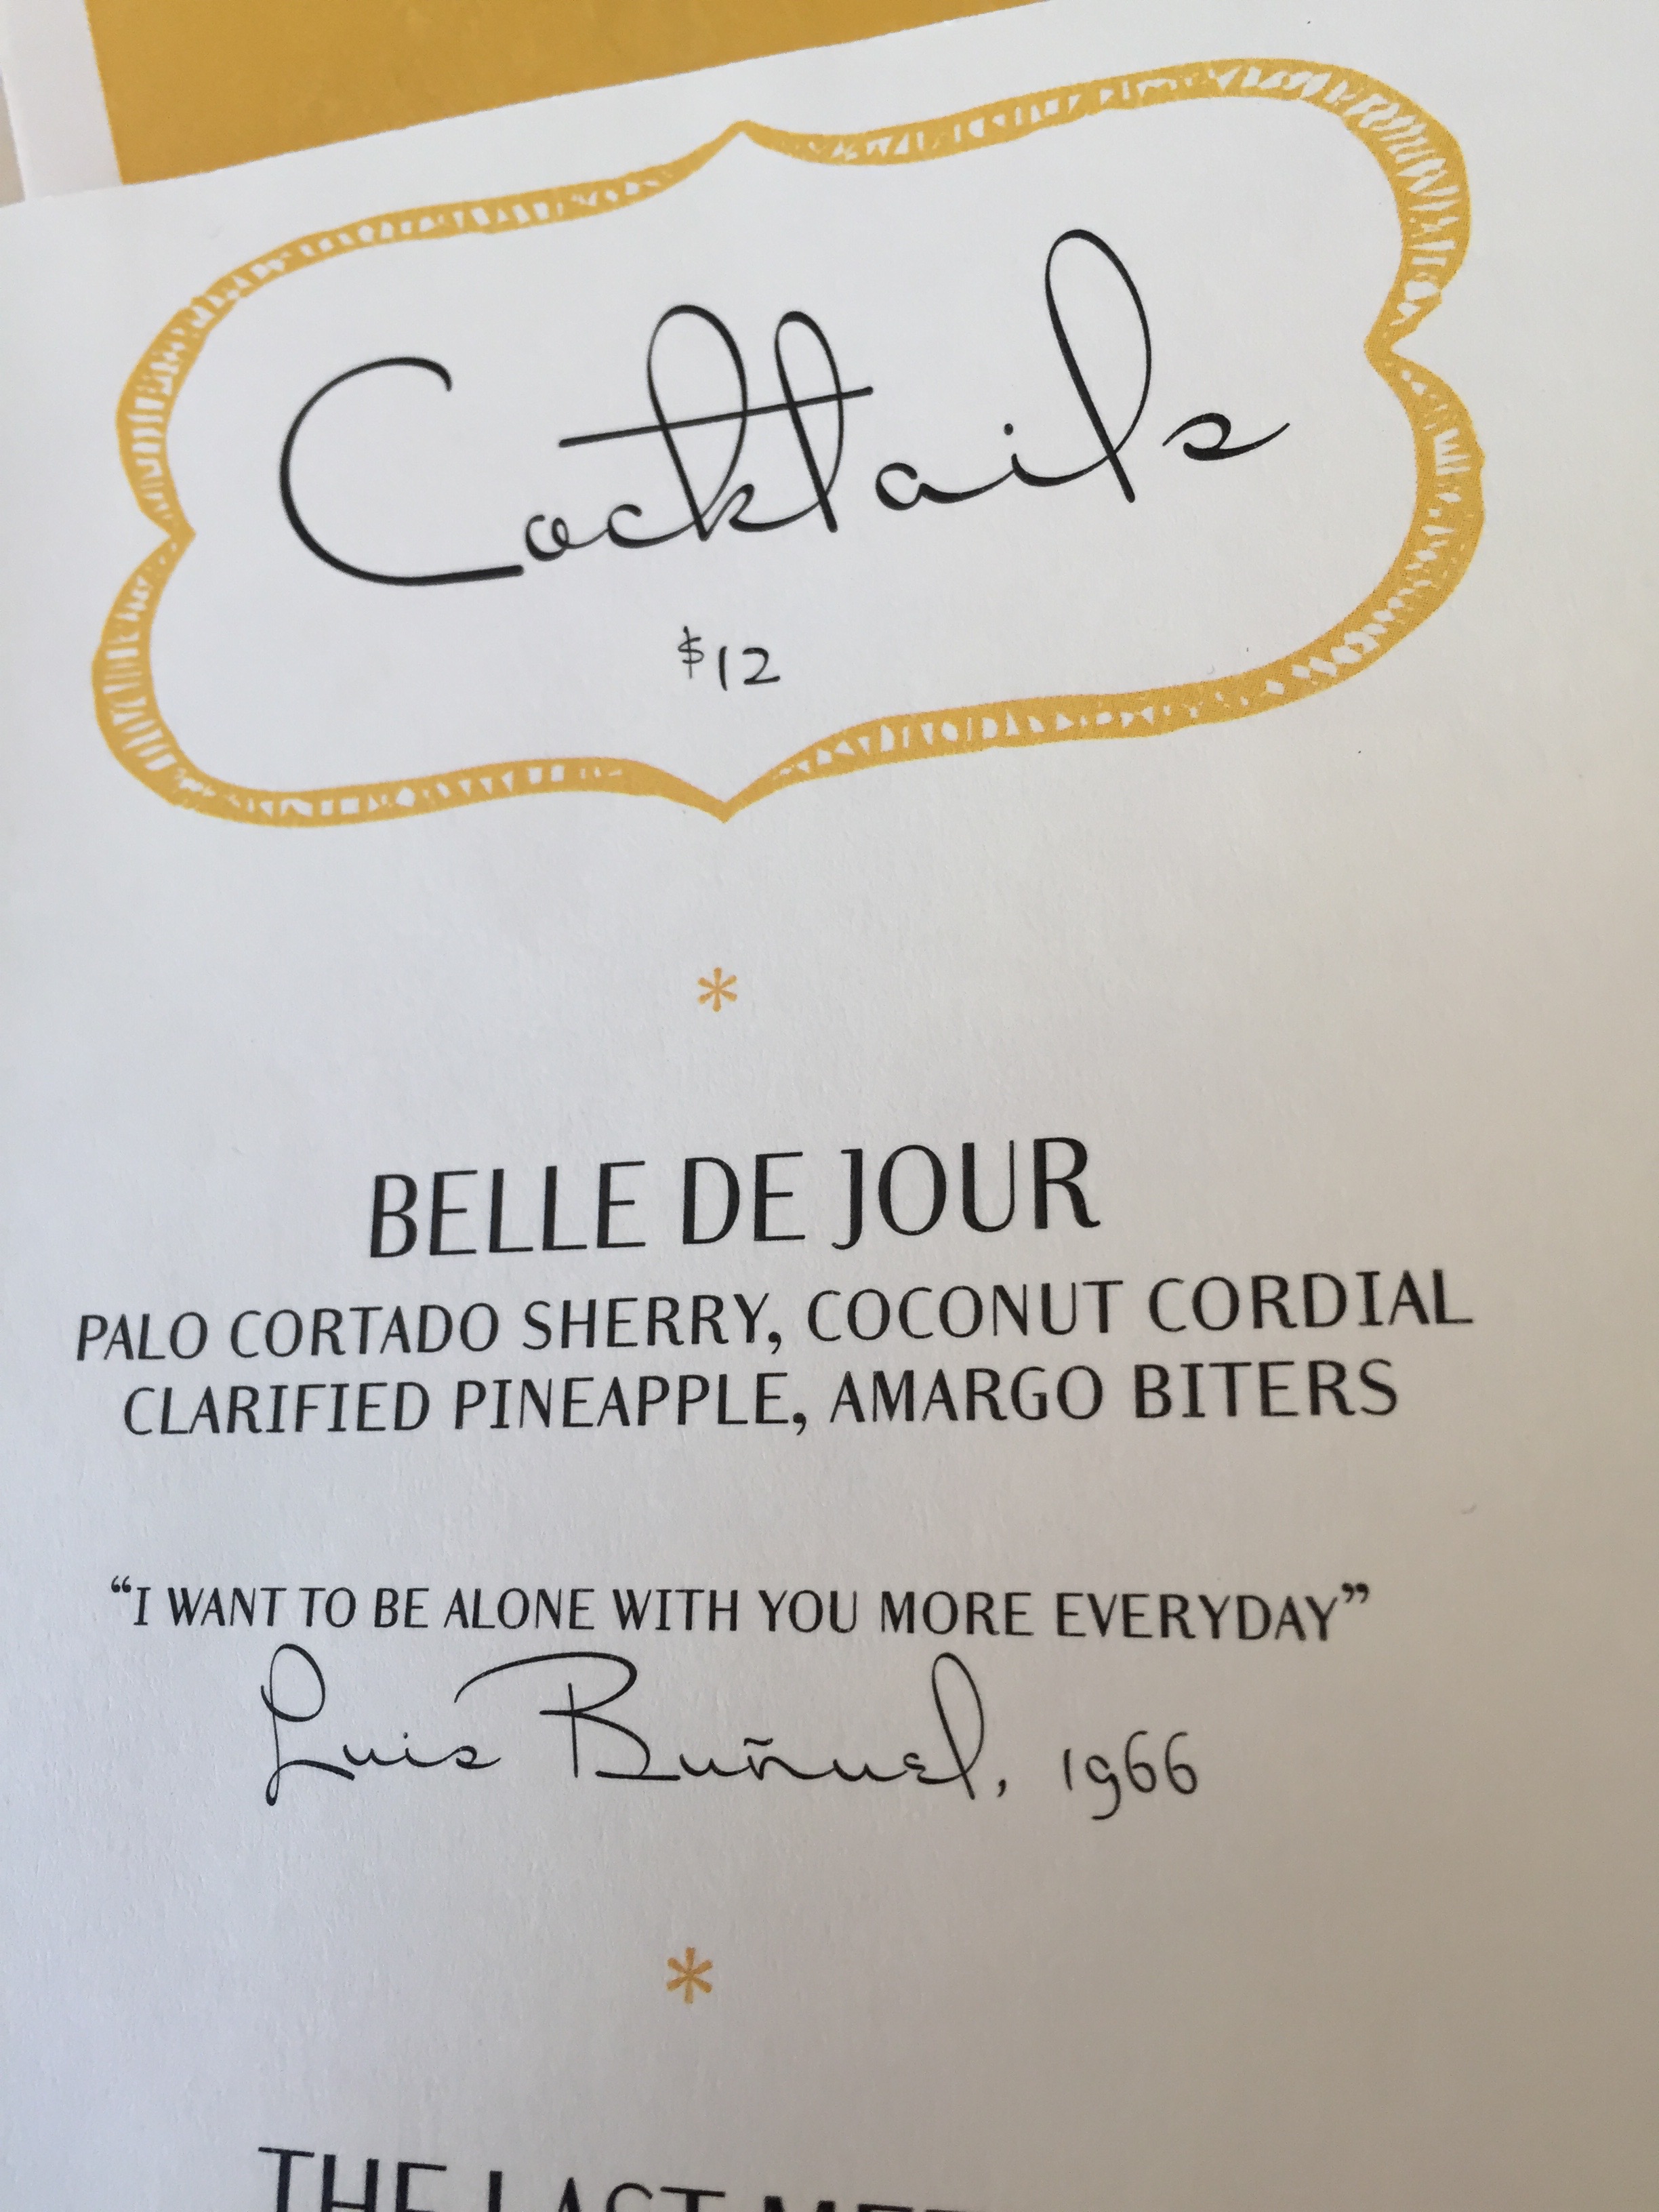 Cocktails
$12
*
BELLE DE JOUR
PALO CORTADO SHERRY, COCONUT CORDIAL
CLARIFIED PINEAPPLE, AMARGO BITERS
“I WANT TO BE ALONE WITH YOU MORE EVERYDAY”
Luis Buñuel, 1966
*
THE LAST